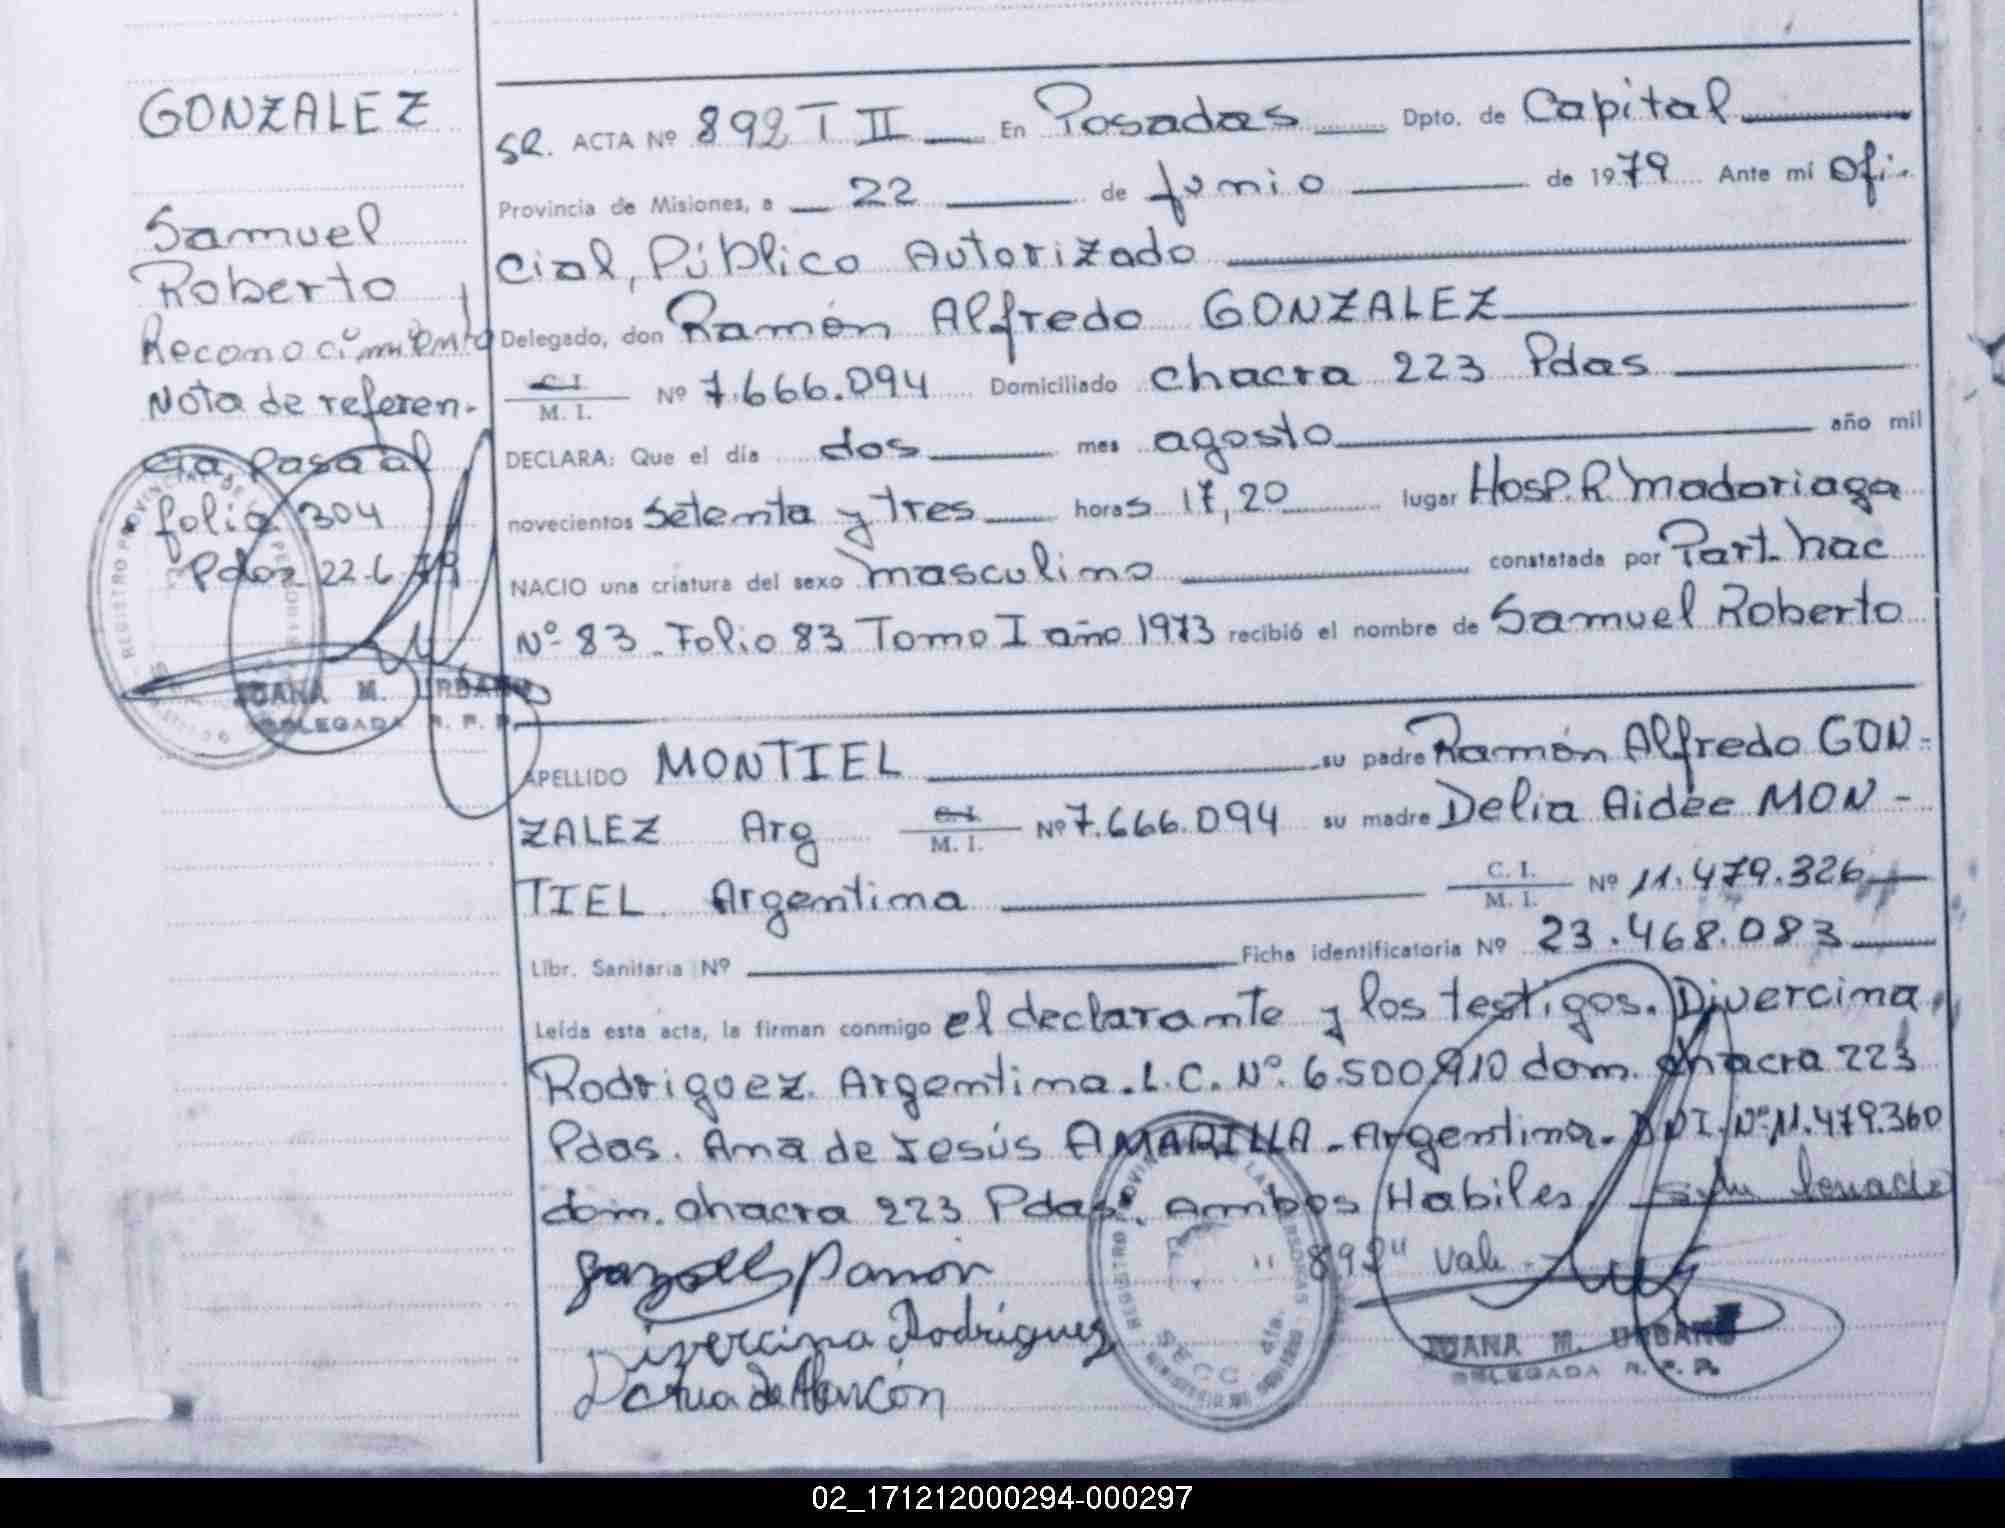 GONZALEZ
Samuel
Roberto
Reconocimiento
Nota de referen-
cia pasa al
folio 304
Pdas 22-6-79
REGISTRO PROVINCIAL DE LAS PERSONAS
JUANA M. URBANO
DELEGADA R. P. P.
SR. ACTA Nº 892 T II En Posadas Dpto. de Capital
Provincia de Misiones, a 22 de junio de 1979 Ante mí Ofi-
cial, Público Autorizado
Delegado, don Ramón Alfredo GONZALEZ
C.I. M. I. Nº 7.666.094 Domiciliado chacra 223 Pdas
DECLARA: Que el día dos mes agosto año mil
novecientos setenta y tres horas 17,20 lugar Hosp. R. Madariaga
NACIO una criatura del sexo masculino constatada por Part. nac
Nº 83 - Folio 83 Tomo I año 1973 recibió el nombre de Samuel Roberto
APELLIDO MONTIEL su padre Ramón Alfredo GON-
ZALEZ Arg C.I. M. I. Nº 7.666.094 su madre Delia Aidée MON-
TIEL Argentina C. I. M. I. Nº 11.479.326
Libr. Sanitaria Nº Ficha identificatoria Nº 23.468.083
Leída esta acta, la firman conmigo el declarante y los testigos. Divercina
Rodriguez. Argentina. L.C. Nº 6.500.910 dom. chacra 223
Pdas. Ana de Jesús AMARILLA - Argentina. DNI. Nº 11.479.360
dom. chacra 223 Pdas. Ambos Habiles.
"892" Vale.
Divercina Rodriguez
REGISTRO PROVINCIAL DE LAS PERSONAS
SECC. 4ta.
JUANA M. URBANO
DELEGADA R. P. P.
02_171212000294-000297